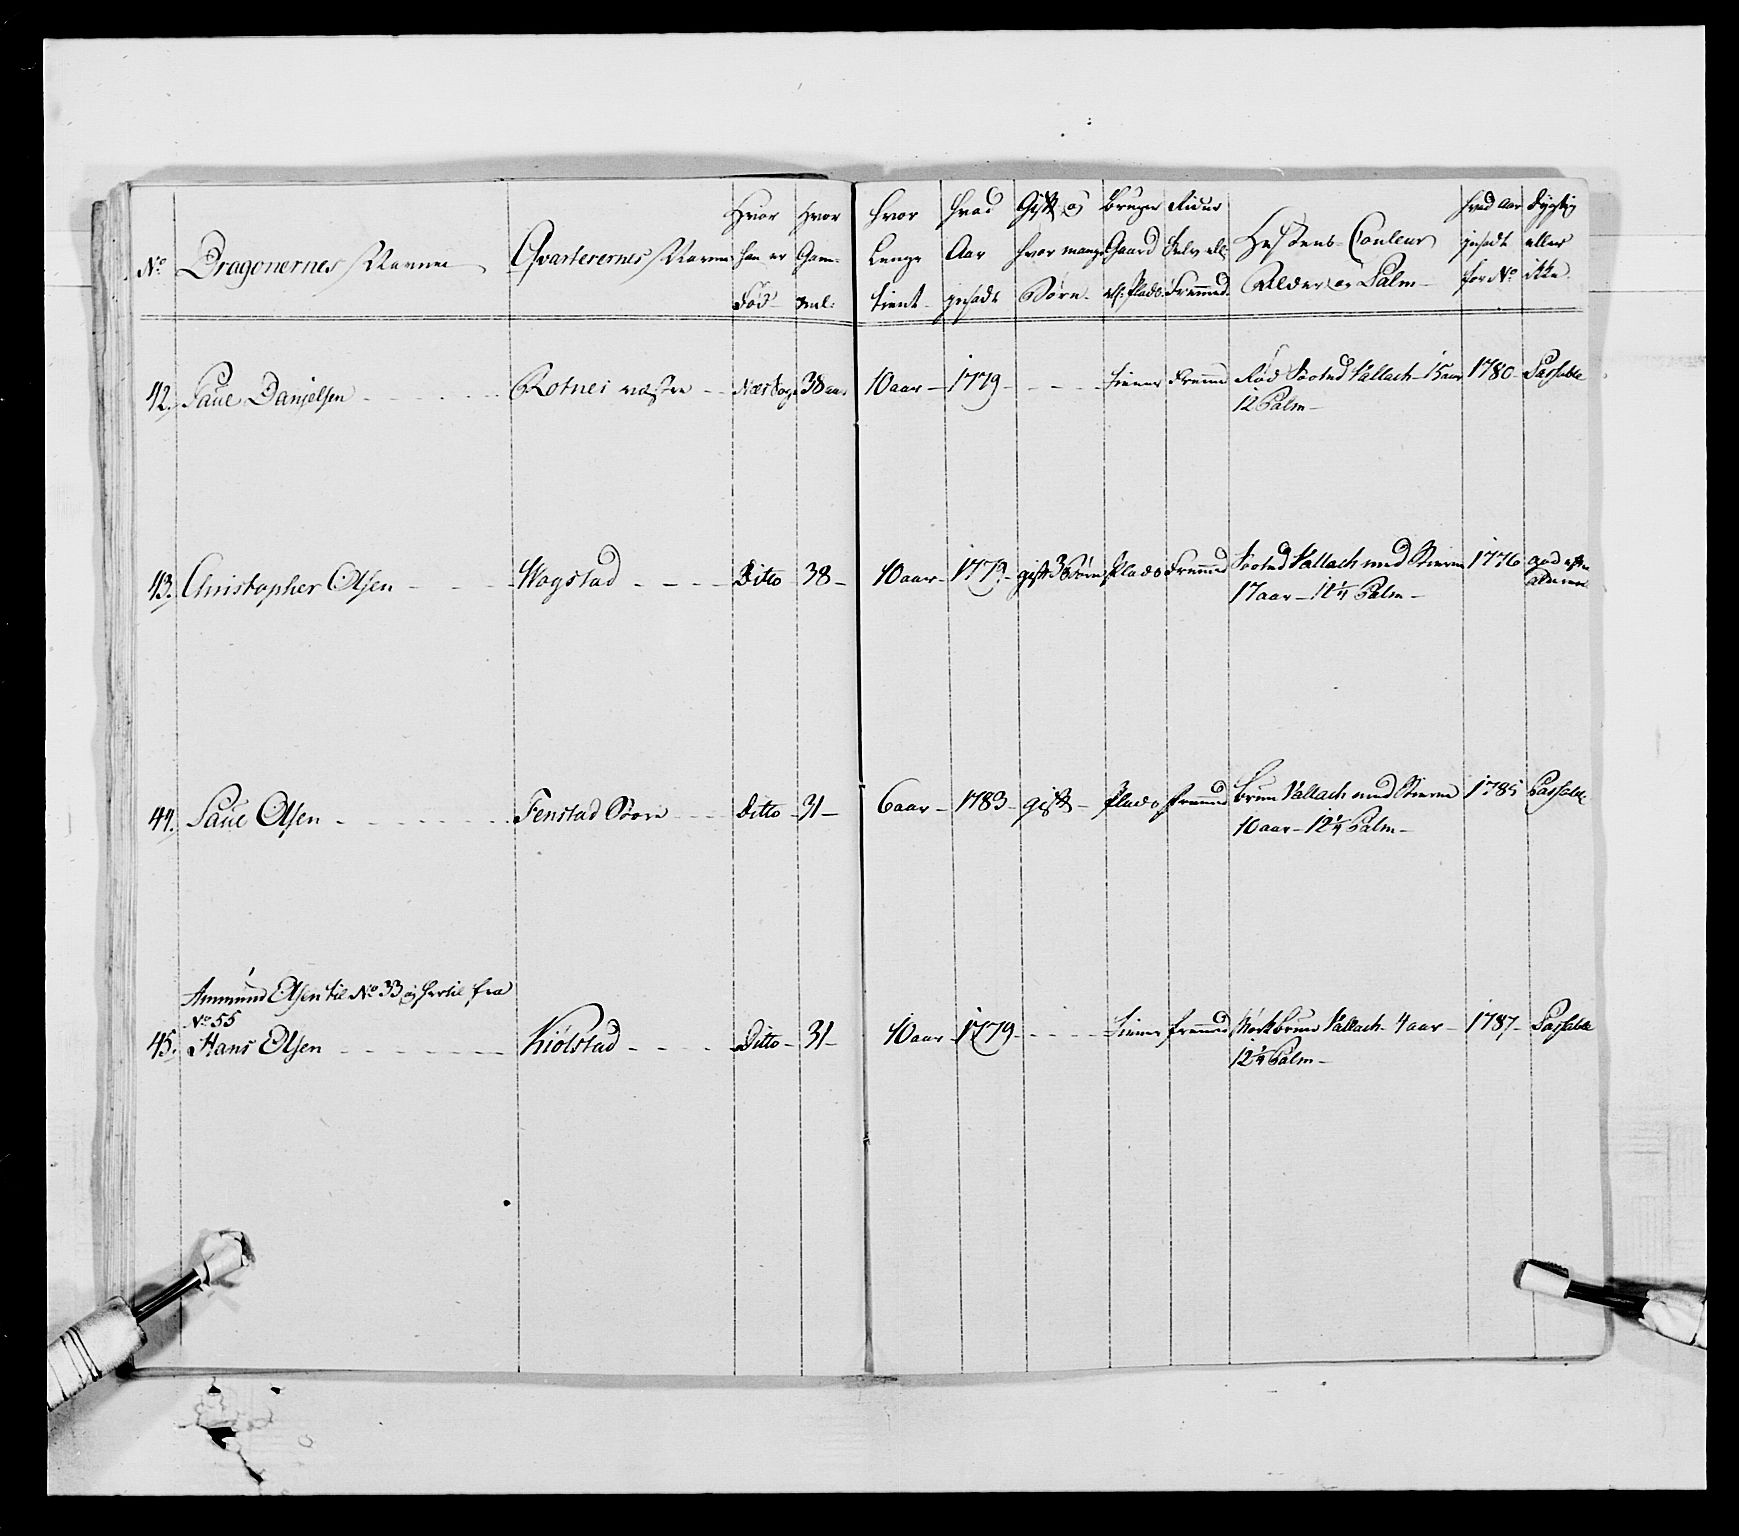 No
Dragonernes Navne
Qvarterernes Navne
Hvor
han er
Fød
Hvor
Gam-
mel.
hvor
Længe
tient
hvad
Aar
gevadt
Gift og
hvor mange
Børn
Bruger
Gaard
ell. Plads
Rider
Selv ell.
Fremmed
Hestens Couleur
Alder og Palm
hvad Aar
for No
dygtig
eller
ikke
42. Paue Danielsen Rotnes næstre 38 aar 10 aar 1779 tiener Fremmed Rød Vallach 15 aar 1780 Passable
12 Palm
43. Christopher Olsen Wogstad Ditto 38 10 aar 1779 gift 3 Børn Plads Fremmed Vallach med Stierne 1776 god efter
17 aar 11¼ Palm Alderen
44. Paue Olsen Fenstad Store Ditto 31 6 aar 1783 gift Plads fremmed brun Vallach med Stierne 1785 Passable
10 aar 12¼ Palm
Ammund Olsen til No 33 og hertil fra
No 55
45. Hans Olsen Kiølstad Ditto 31 10 aar 1779 tiener fremmed Mørkbrun Vallach 4 aar 1787 Passable
12¼ Palm